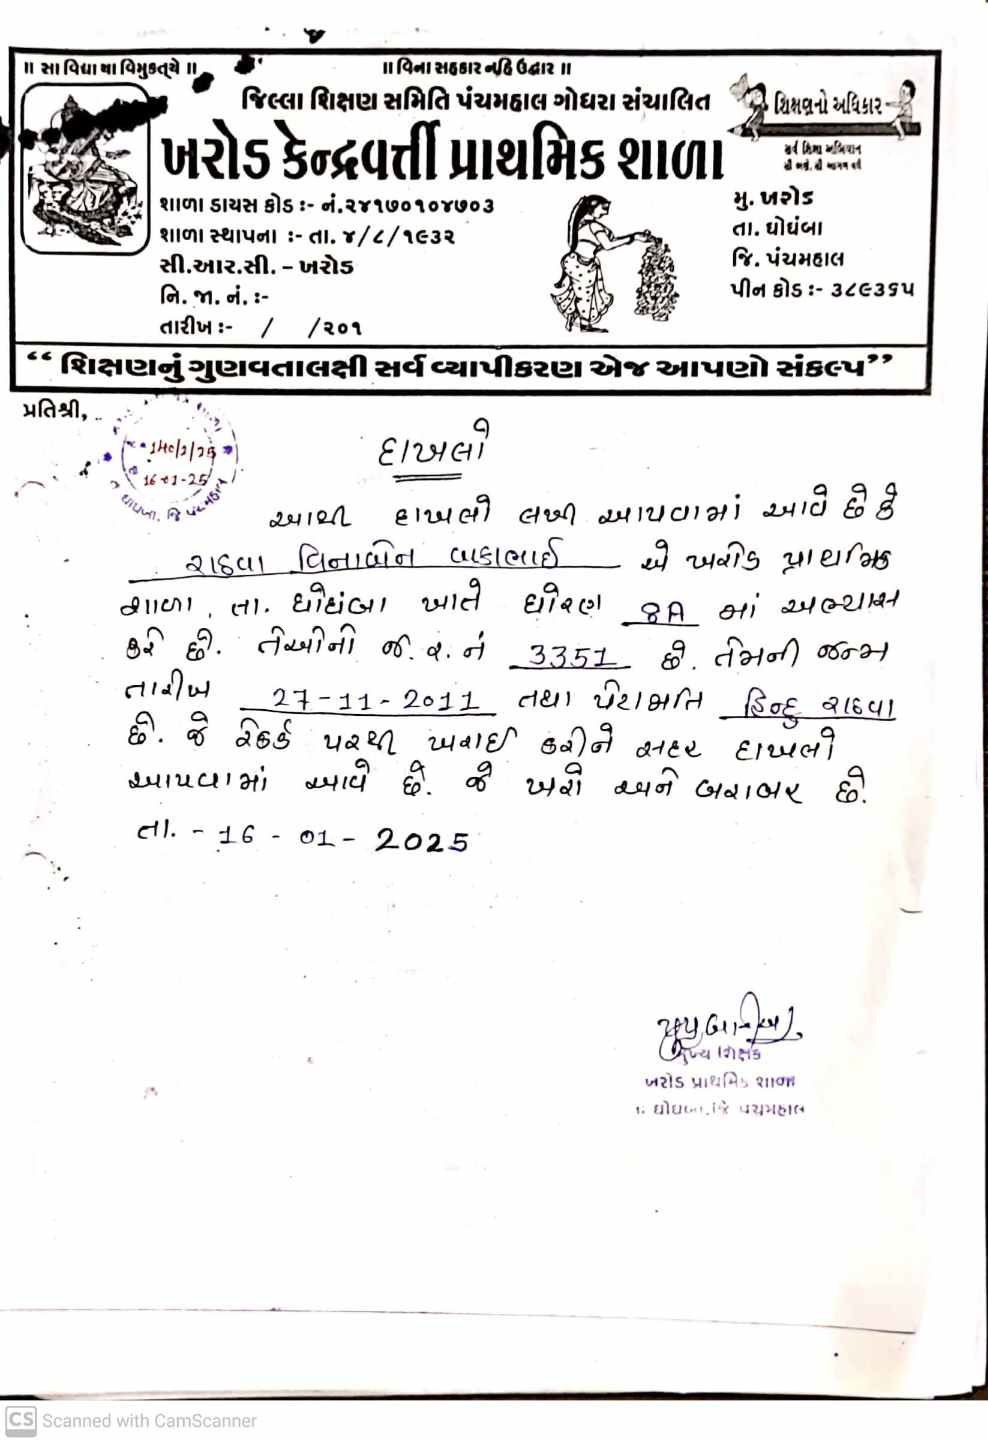 ॥ સા વિદ્યા યા વિમુક્ત્યે ॥
॥ વિના સહકાર નહિ ઉદ્ધાર ॥
જિલ્લા શિક્ષણ સમિતિ પંચમહાલ ગોધરા સંચાલિત
શિક્ષણનો અધિકાર
ખરોડ કેન્દ્રવર્તી પ્રાથમિક શાળા
સર્વ શિક્ષા અભિયાન
શાળા ડાયસ કોડ :- નં.૨૪૧૭૦૧૦૪૭૦૩
શાળા સ્થાપના :- તા. ૪/૮/૧૯૩૨
સી.આર.સી. - ખરોડ
નિ. જા. નં. :-
તારીખ :- / /૨૦૧
મુ. ખરોડ
તા. ઘોઘંબા
જિ. પંચમહાલ
પીન કોડ :- ૩૮૯૩૬૫
“ શિક્ષણનું ગુણવતાલક્ષી સર્વ વ્યાપીકરણ એજ આપણો સંકલ્પ”
પ્રતિશ્રી,
16-01-25
દાખલો
આથી દાખલો લખી આપવામાં આવે છે કે
રાઠવા વિનાબેન વાકાભાઈ એ ખરોડ પ્રાથમિક
શાળા, તા. ઘોઘંબા ખાતે ધોરણ 8A માં અભ્યાસ
કરે છે. તેઓનો જ. ર. નં 3351 છે. તેમની જન્મ
તારીખ 27-11-2011 તથા પેટાજાતિ હિન્દુ રાઠવા
છે. જે રેકર્ડ પરથી ખરાઈ કરીને સદર દાખલો
આપવામાં આવે છે. જે ખરો અને બરાબર છે.
તા. - 16 - 01 - 2025
મુખ્ય શિક્ષક
ખરોડ પ્રાથમિક શાળા
ઘોઘંબા.જિ પંચમહાલ
CS Scanned with CamScanner